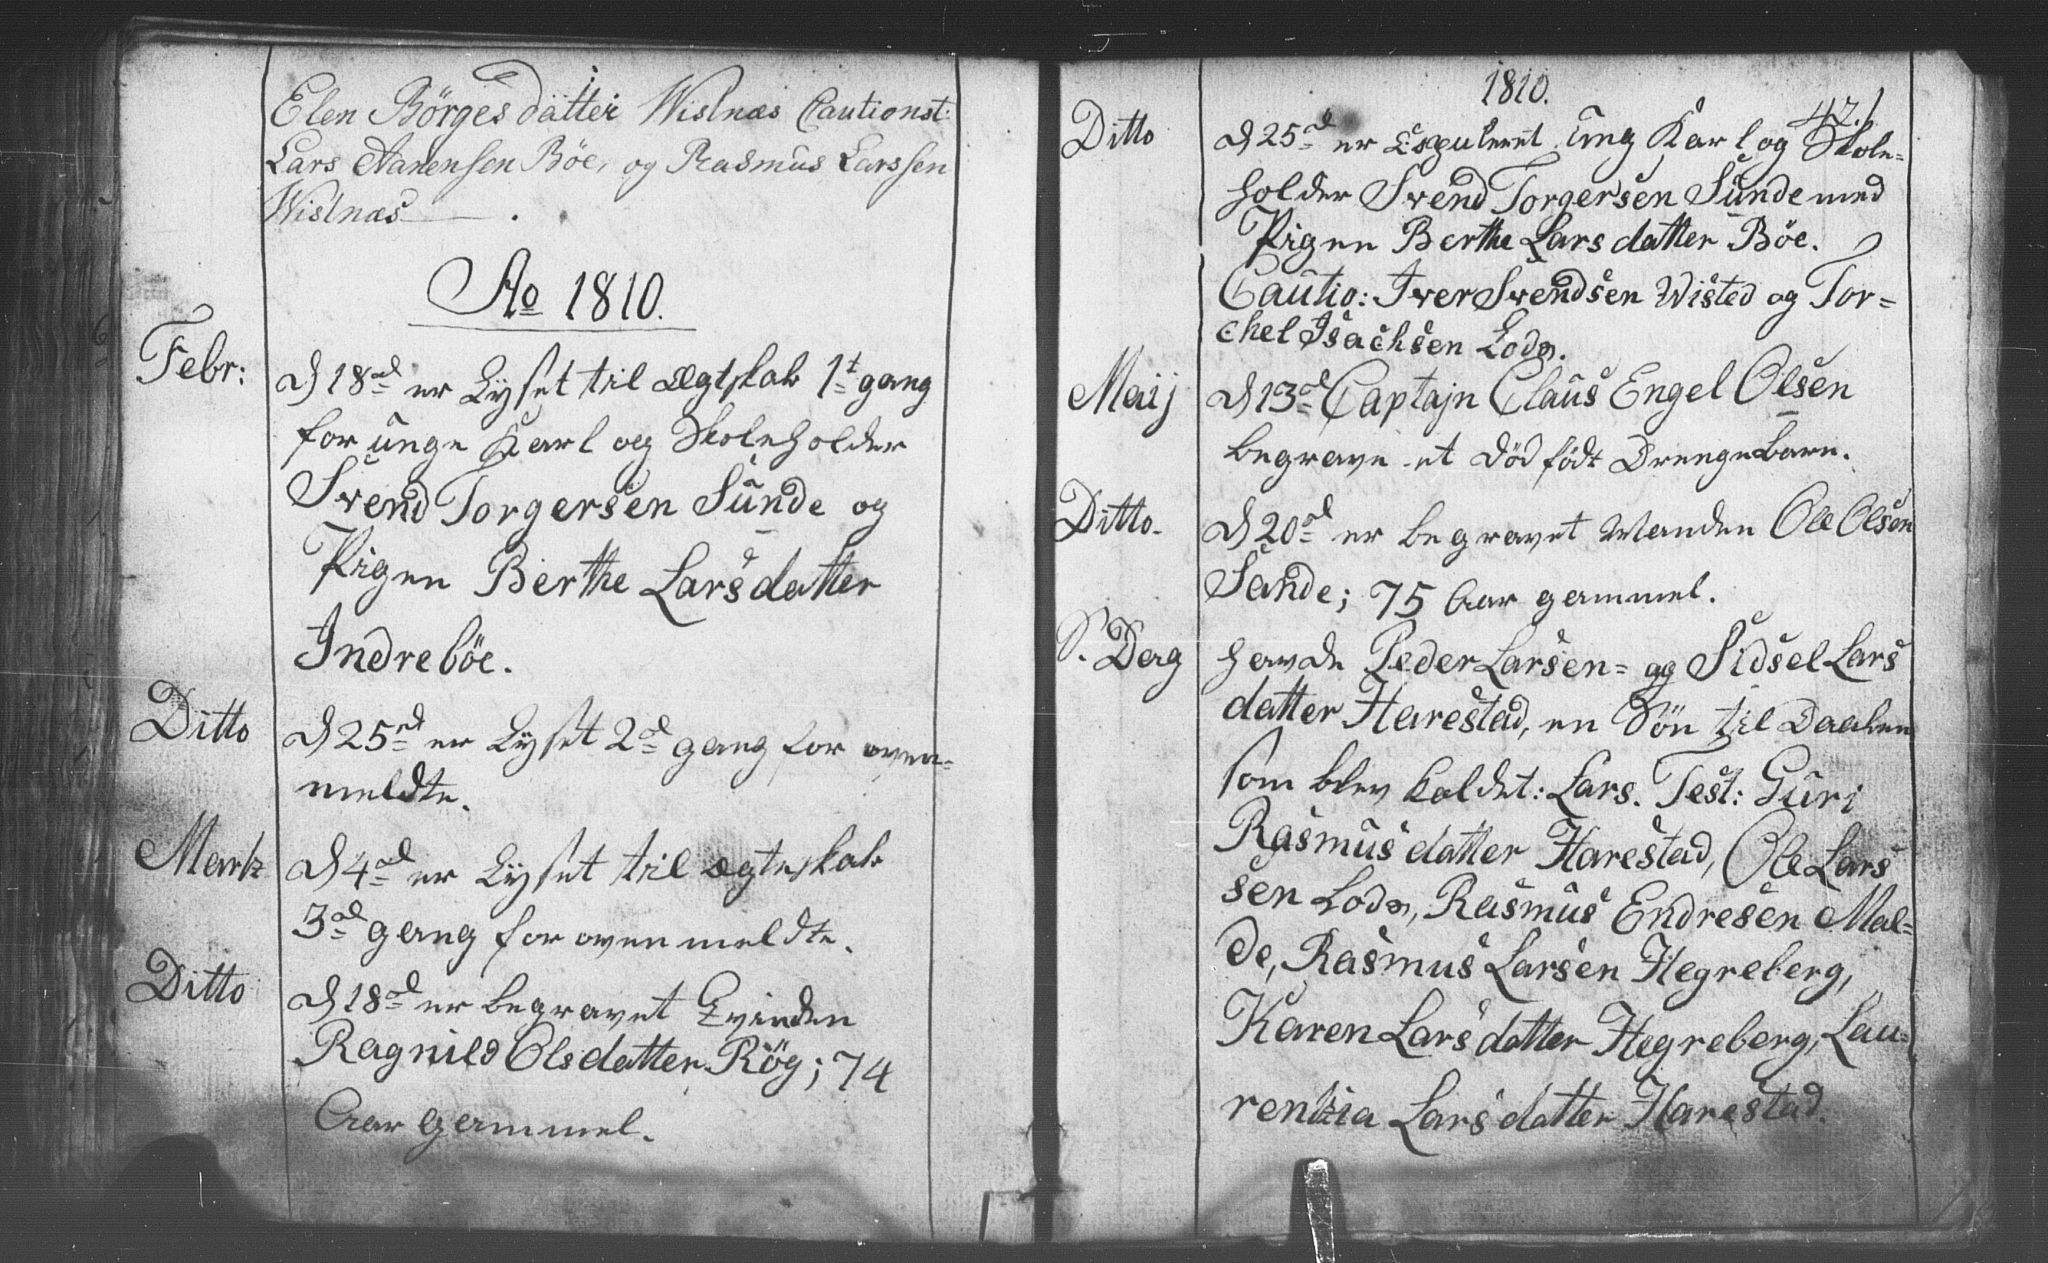 Elen Börges datter Wislnæs Cautionst:
Lars Aanensen Böe, og Rasmus Larssen
Wislnæs
Ao 1810.
Febr:
d 18de er Lyset til ægtskab 1t gang
for unge Karl og Skoleholder
Svend Torgersen Sunde og
Pigen Berthe Larsdatter
Indreböe.
Ditto
d 25de er Lyset 2de gang for oven-
meldte.
Martz
d 4de er Lyset til ægteskab
3de gang for ovenmeldte.
Ditto
d 18de er begravet Qvinden
Ragnild Olsdatter Rög; 74
Aar gammel.
1810.
42.
Ditto
d 25de er Copuleret Ung Karl og Skole-
holder Svend Torgersen Sunde med
Pigen Berthe Larsdatter Böe.
Cautio: Iver Svendsen Wisted og Tor-
chel Isachsen Lode.
Maij
d 13de Captajn Claus Engel Olsen
begrave et död födt Drengebarn.
Ditto.
d 20de er begravet Manden Ole Olsen
Sande; 75 Aar gammel.
S. Dag
havde Peder Larsen- og Sidsel Lars
datter Harestad, en Sön til Daaben
som blev kaldet: Lars. Test: Guri
Rasmusdatter Harestad, Ole Lars
sen Lode, Rasmus Endresen Mal-
de, Rasmus Larsen Hegreberg,
Karen Larsdatter Hegreberg, Lau-
rentzia Larsdatter Harestad.